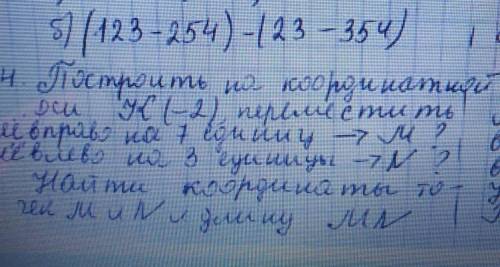 б) (123-254)-(23-354)
4. Построить на координатной
оси К(-2) переместить
её вправо на 7 единиц → М ?
её влево на 3 единицы → N ?
Найти координаты то-
чек М и N и длину MN